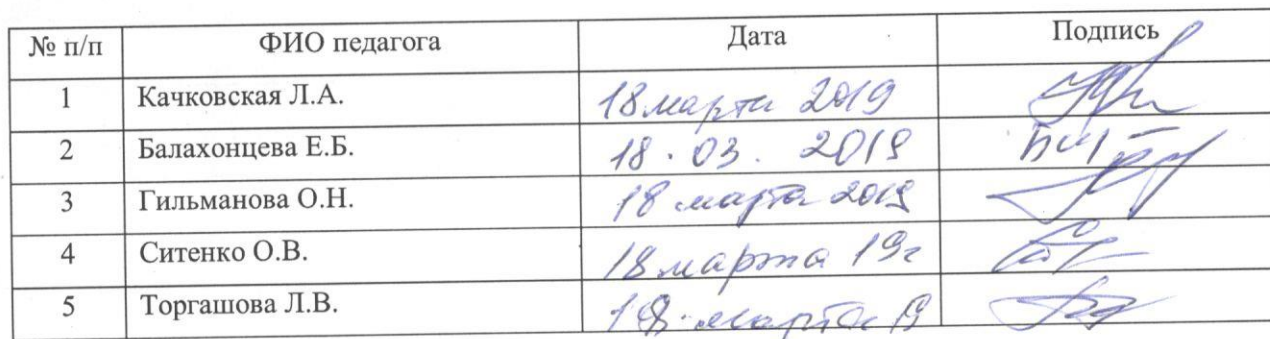 № п/п ФИО педагога Дата Подпись
1 Качковская Л.А. 18 марта 2019
2 Балахонцева Е.Б. 18.03.2019
3 Гильманова О.Н. 18 марта 2019
4 Ситенко О.В. 18 марта 19г
5 Торгашова Л.В. 18 марта 19